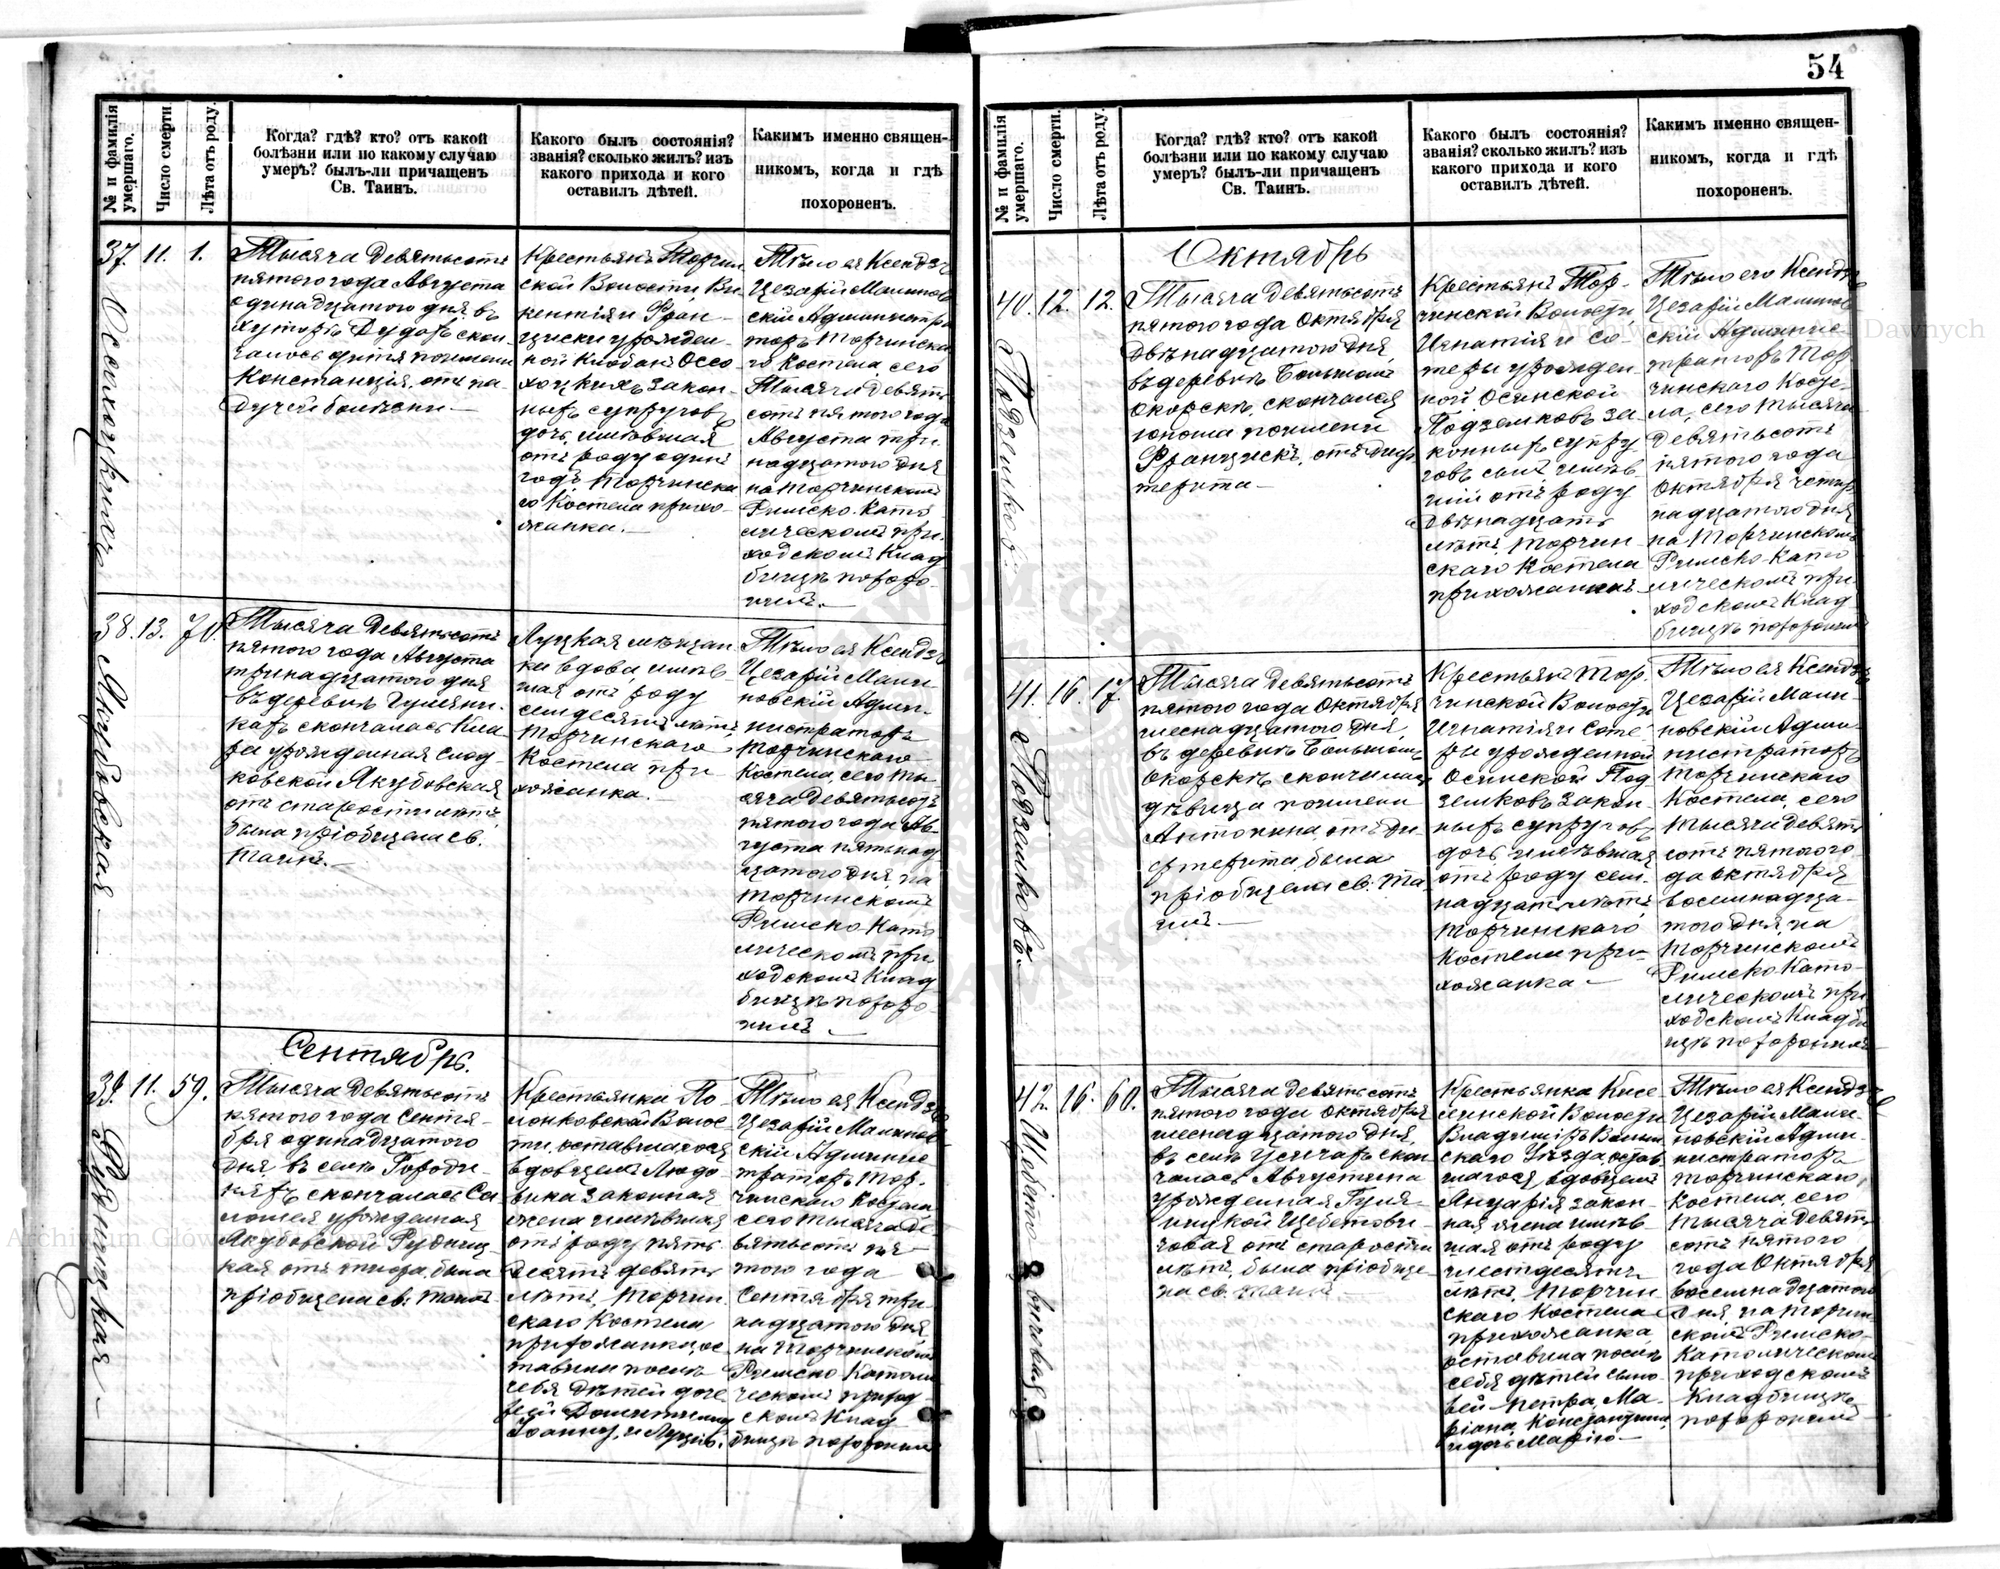 № и фамилія умершаго.
Число смерти.
Лѣта отъ роду.
Когда? гдѣ? кто? отъ какой
болѣзни или по какому случаю
умеръ? былъ-ли причащенъ
Св. Таинъ.
Какого былъ состоянія?
званія? сколько жилъ? изъ
какого прихода и кого
оставилъ дѣтей.
Каким​ъ именно священ-
никомъ, когда и гдѣ
похороненъ.
37.
11.
1.
Тысяча девятьсотъ
пятого года Августа
одинадцатого дня въ
хуторѣ Дудахъ скон-
чалось дитя по имени
Констанція, отъ па-
дучей болѣзни.—
Крестьянъ Торчин
ской Волости, Ви
кентія и Фран-
циски урожден-
ной
закон-
ныхъ супруговъ
дочь, имѣвшая
отъ роду одинъ
годъ, Торчинска
го Костела прихо-
жанка.—
Тѣло ея Ксендзъ
Цезарій Малинов
скій Администра
торъ Торчинска
го Костела, сего
Тысяча девять
сотъ пятого года
Августа три
надцатого дня
на Торчинскомъ
Римско-Като
лическомъ при
ходскомъ Клад
бищѣ похоро-
нилъ.—
38.
13.
70.
Якубовская—
Тысяча девятьсотъ
пятого года Августа
тринадцатого дня
въ деревнѣ
скончалась Кла
ра урожденная Слод-
ковской Якубовская
отъ старости лѣтъ,
была пріобщена св.
Таинъ.—
Луцкая мѣщан
ка вдова, имѣв
шая отъ роду
семдесятъ лѣтъ
Торчинскаго
Костела при
хожанка.—
Тѣло ея Ксендзъ
Цезарій Мали-
новскій Адми-
нистраторъ
Торчинскаго
Костела, сего ты
сяча девятьсотъ
пятого года Ав-
густа пятьнад
цатого дня, на
Торчинскомъ
Римско-Като
лическомъ при
ходскомъ Клад
бищѣ похоро-
нилъ.—
Сентябрь.
39.
11.
59.
Рудницкая—
Тысяча девятьсотъ
пятого года Сентя-
бря одинадцатого
дня въ селѣ Городи-
няхъ скончалась Са
ломея урожденная
Якубовской Рудниц
кая отъ тифа, была
пріобщена св. Таинъ
Крестьянка По
лонковской Волос-
ти, оставшагося
вдовцемъ Людо
вика законная
жена имѣвшая
отъ роду пять
десятъ девять
лѣтъ, Торчин
скаго Костела
прихожанка, ос
тавила послѣ
себя дѣтей доче
рей
Іоанну, и Луцію.
Тѣло ея Ксендзъ
Цезарій Малинов
скій Админис
траторъ Тор-
чинскаго Костела
сего тысяча де
вятьсотъ пя-
того года
Сентября три
надцатого дня,
на Торчинскомъ
Римско-Католи
ческомъ приход-
скомъ Клад
бищѣ похоронилъ
54
№ и фамилія умершаго.
Число смерти.
Лѣта отъ роду.
Когда? гдѣ? кто? отъ какой
болѣзни или по какому случаю
умеръ? былъ-ли причащенъ
Св. Таинъ.
Какого былъ состоянія?
званія? сколько жилъ? изъ
какого прихода и кого
оставилъ дѣтей.
Какимъ именно священ-
никомъ, когда и гдѣ
похороненъ.
Октябрь
40.
12.
12.
Подземковъ.
Тысяча девятьсотъ
пятого года Октября
двѣнадцатого дня
въ деревнѣ Большомъ
Окорскѣ, скончался
юноша по имени
Францискъ, отъ диф-
терита—
Крестьянъ Тор-
чинской Волости
Игнатія и Со-
теры урожден
ной Осинской
Подземковъ за-
конныхъ супру
говъ сынъ, имѣв
шій отъ роду
двѣнадцать
лѣтъ, Торчин-
скаго Костела
прихожанинъ.
Тѣло его Ксендзъ
Цезарій Малинов
скій Админис-
траторъ Тор
чинскаго Косте
ла, сего тысяча
девятьсотъ
пятого года
Октября четыр
надцатого дня
на Торчинскомъ
Римско-Като
лическомъ при
ходскомъ Клад
бищѣ похоронилъ
41.
16.
17
Подземковъ.
Тысяча девятьсотъ
пятого года Октября
шеснадцатого дня,
въ деревнѣ Большомъ
Окорскѣ скончалась
дѣвица по имени
Антонина, отъ ди-
фтерита, была
пріобщена св. Та
инъ.—
Крестьянъ Тор
чинской Волости
Игнатія и Соте
ры урожденной
Осинской Под
земковъ закон
ныхъ супруговъ
дочь имѣвшая
отъ роду сем-
надцать лѣтъ
Торчинскаго
Костела при-
хожанка—
Тѣло ея Ксендзъ
Цезарій Мали-
новскій Адми-
нистраторъ
Торчинскаго
Костела, сего
Тысяча девять
сотъ пятого го
да Октября
восемнадца-
того дня, на
Торчинскомъ
Римско-Като-
лическомъ при
ходскомъ Кладби
щѣ похоронилъ
42.
16.
60.
Тысяча девятьсотъ
пятого года Октября
шеснадцатого дня,
въ селѣ Усичахъ скон
чалась Августина
урожденная
Щебетови-
човая отъ старости
лѣтъ, была пріобще-
на св. Таинъ—
Крестьянка Кисе-
линской Волости
Владиміръ Волын
скаго Уѣзда остав
шагося вдовцемъ
Януарія закон-
ная жена имѣв
шая отъ роду
шестдесятъ
лѣтъ, Торчин
скаго Костела
прихожанка,
оставила послѣ
себя дѣтей сыно-
вей Петра, Ма-
ріана, Константина
и дочь Марію—
Тѣло ея Ксендзъ
Цезарій Мали
новскій Адми-
нистраторъ
Торчинскаго
Костела, сего
Тысяча девять
сотъ пятого
года Октября
восемнадцатого
дня, на Торчин
скомъ Римско-
Католическомъ
приходскомъ
Кладбищѣ
похоронилъ